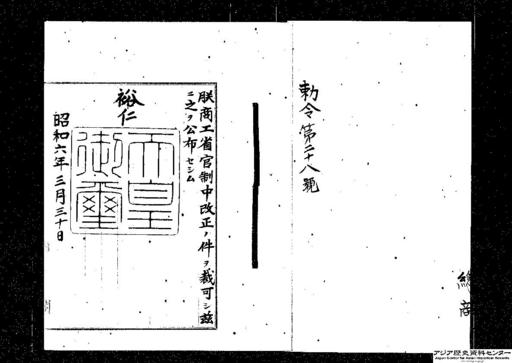 勅令第二十八號
朕商工省官制中改正ノ件ヲ裁可シ茲
ニ之ヲ公布セシム
裕仁
天皇
御璽
昭和六年三月三十日
アジア歴史資料センター
Japan Center for Asian Historical Records